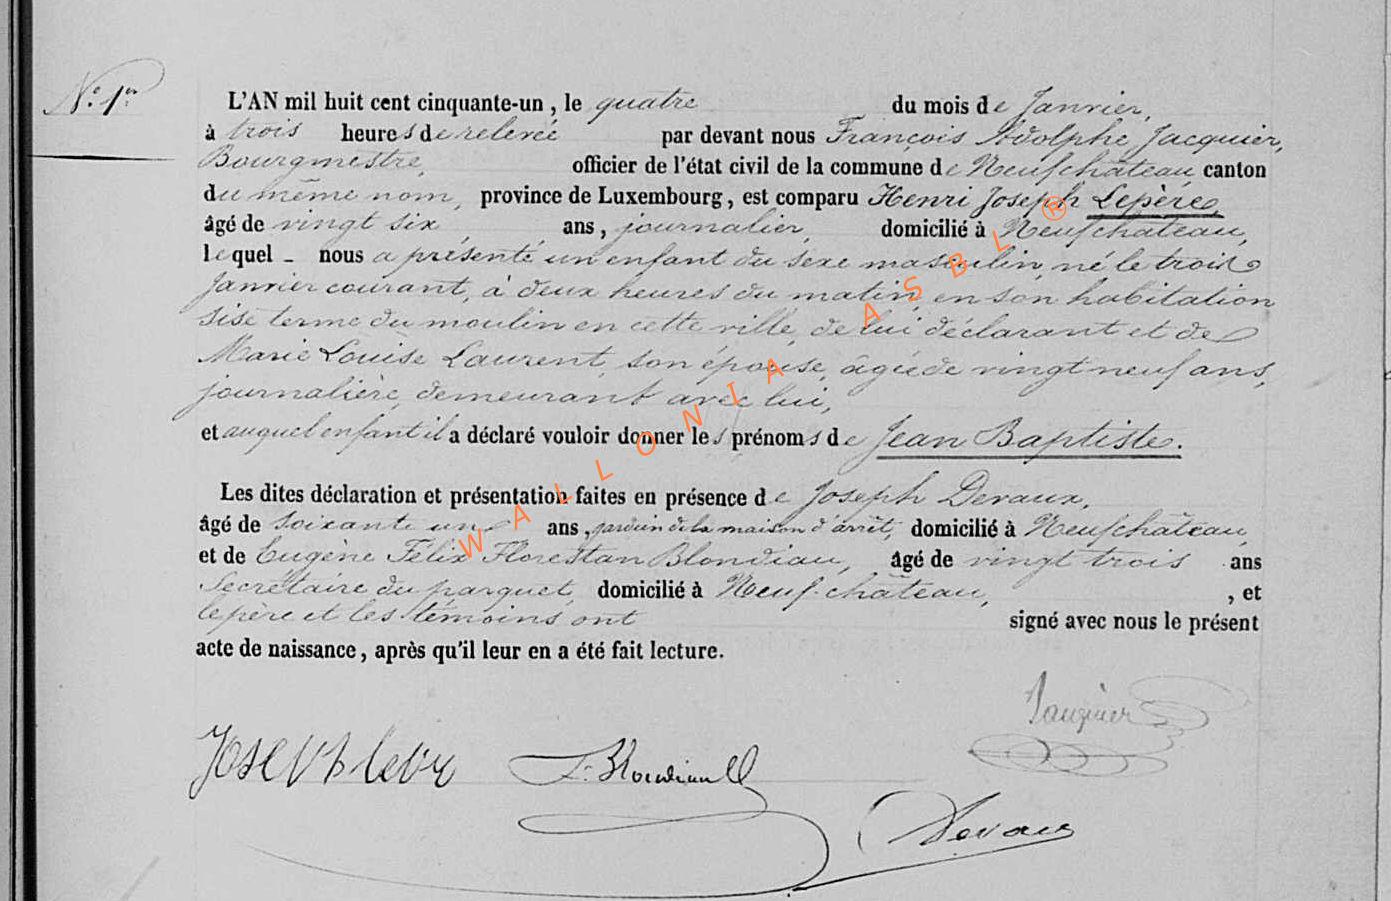 N.° 1.er
L'AN mil huit cent cinquante-un, le quatre du mois de Janvier,
à trois heures de relevée par devant nous François Adolphe Jacquier,
Bourgmestre, officier de l'état civil de la commune de Neufchâteau canton
du même nom, province de Luxembourg, est comparu Henri Joseph Lepère,
âgé de vingt six, ans, journalier, domicilié à Neufchâteau,
lequel - nous a présenté un enfant du sexe masculin, né le trois
Janvier courant, à deux heures du matin, en son habitation
sise terme du moulin en cette ville, de lui déclarant et de
Marie Louise Laurent, son épouse, âgée de vingt neuf ans,
journalière, demeurant avec lui,
et auquel enfant il a déclaré vouloir donner les prénoms de Jean Baptiste.
Les dites déclaration et présentation faites en présence de Joseph Devaux,
âgé de soixante un ans, gardien de la maison d'arrêt, domicilié à Neufchâteau,
et de Eugène Félix Florestan Blondiau, âgé de vingt trois ans
Secrétaire du parquet, domicilié à Neuf-château, , et
le père et les témoins ont signé avec nous le présent
acte de naissance, après qu'il leur en a été fait lecture.
Jacquier
Joseph
F. Blondiau
Devaux
WALLONIA ASBL ®